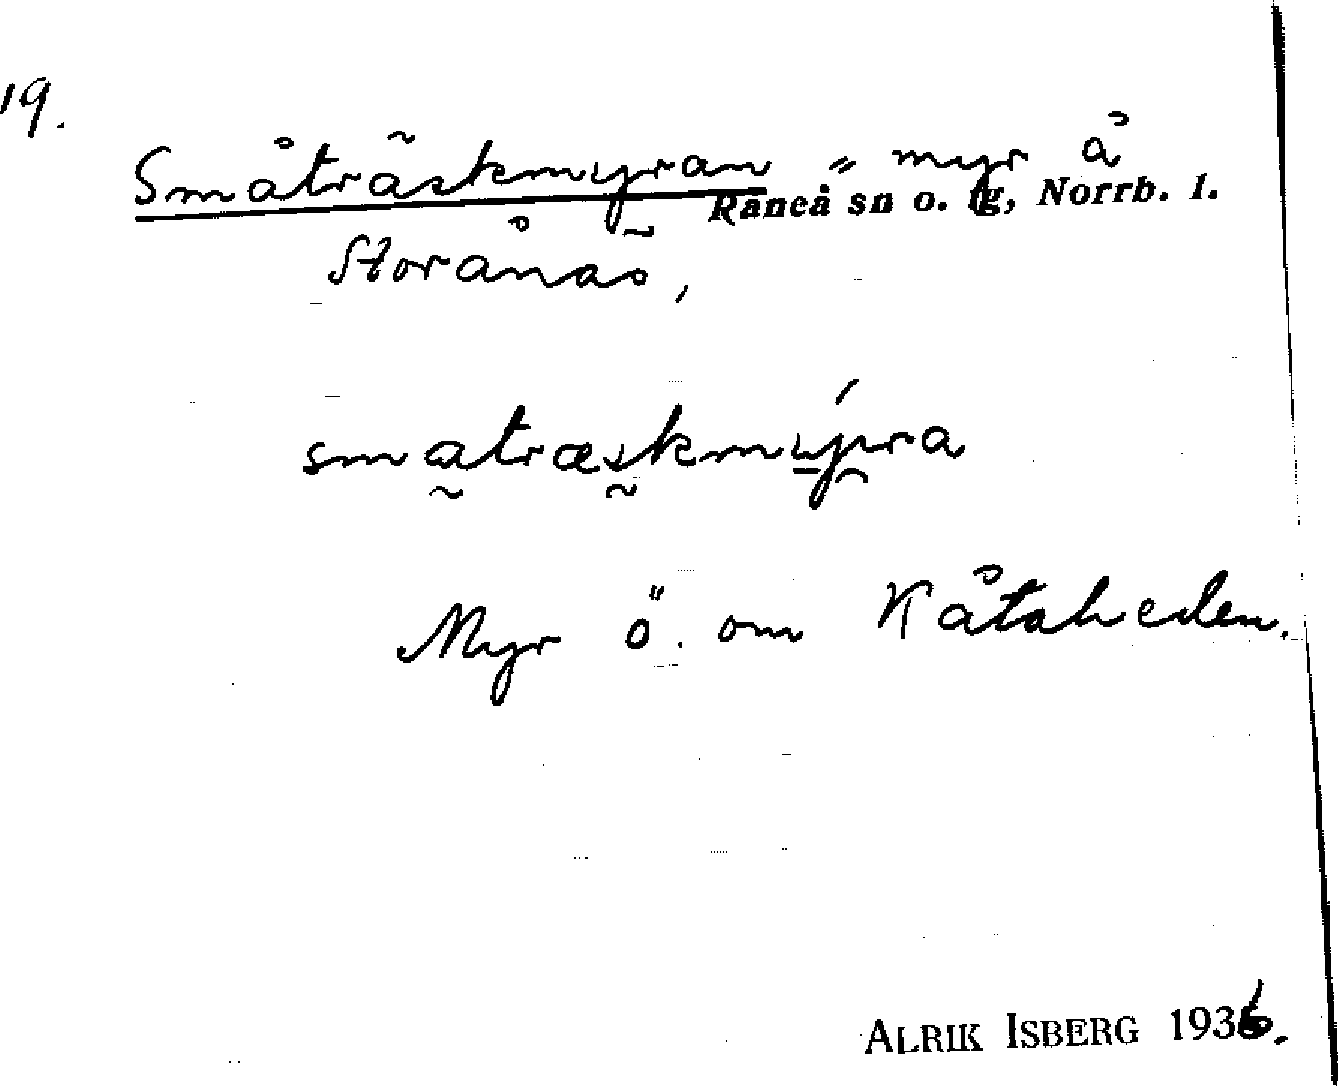 19.
Småträskmyran, myr å
Råneå sn o. tg, Norrb. l.
Storånäs,
smatræskmýra
Myr ö. om Kåtaheden.
ALRIK ISBERG 1936.